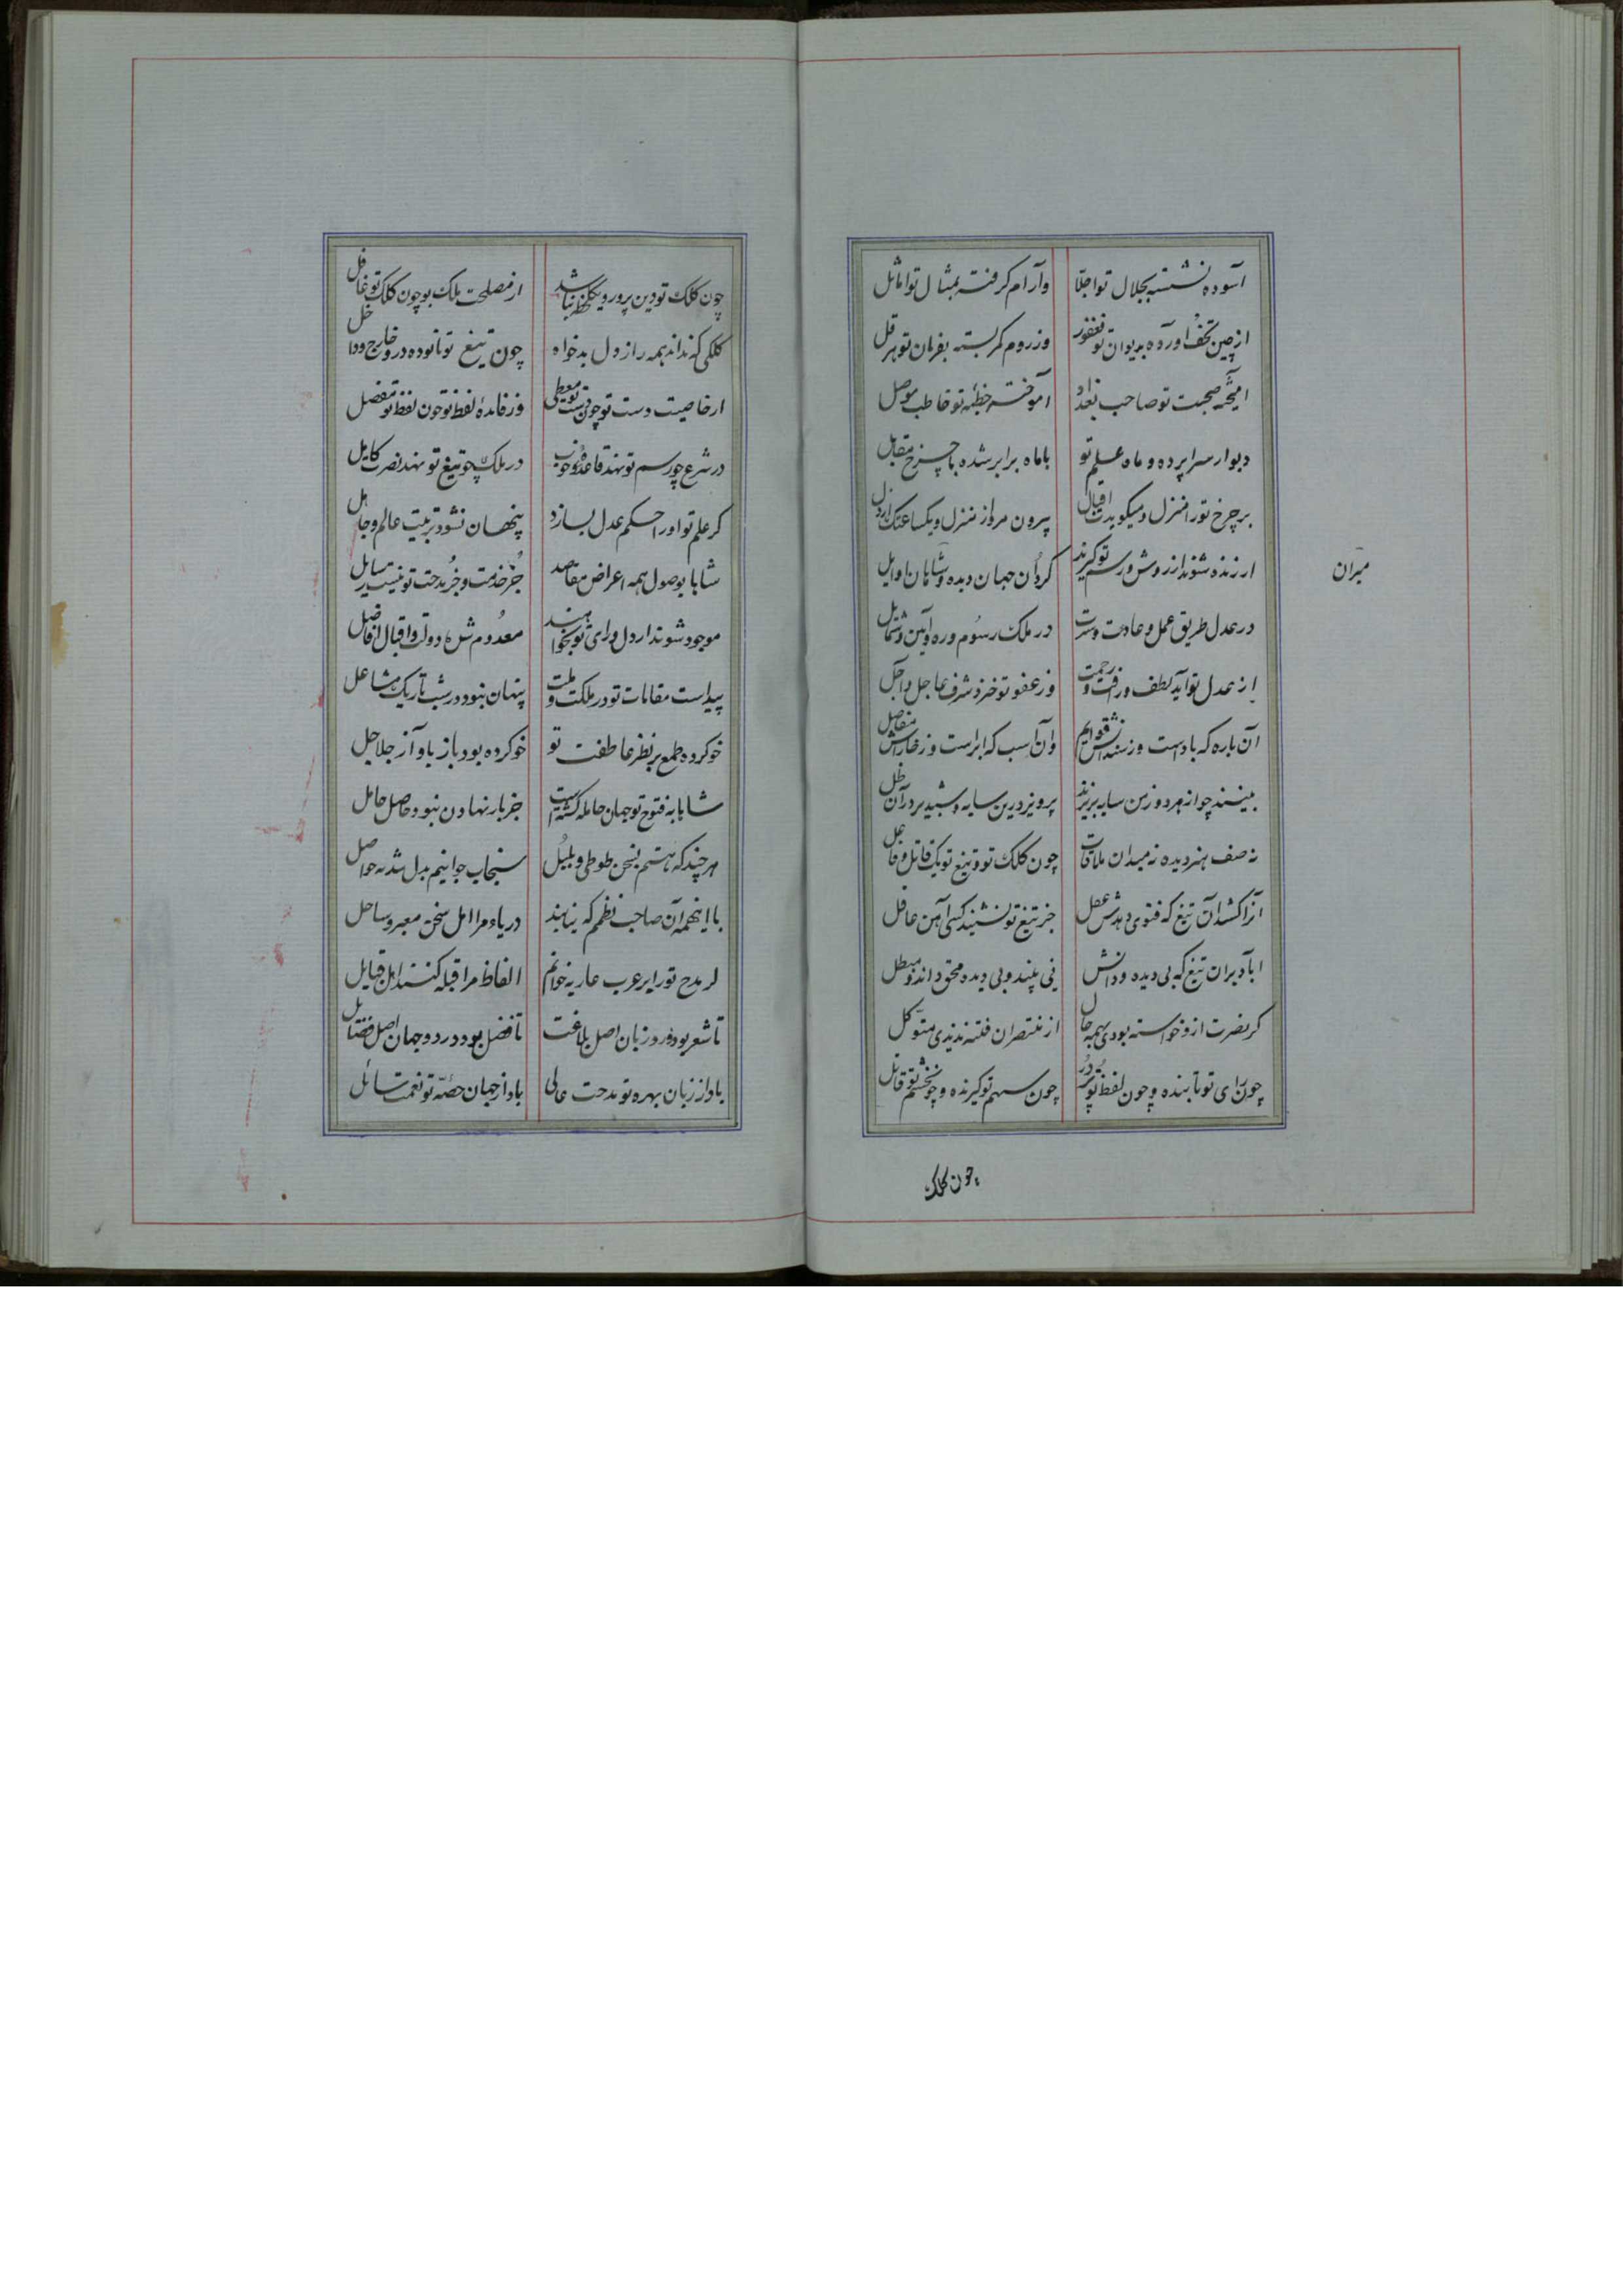 آسوده نشسته بجلال تو اجلا
وآرام گرفته بمثال تو اماثل
از چین تحف آورده بدیوان تو فغفور
وز روم کمر بسته بفرمان تو هرقل
آمیخته صحبت تو صاحب بغداد
آموخته خطبه تو خاطب موصل
دیوار سراپرده و ماه علم تو
با ماه برابر شده با چرخ مقابل
بر چرخ تو را منزل و میگوید اقبال
بیرون مرو از منزل و یکساعتک انزل
ار زنده شوند از روش و رسم تو گیرند
گردان جهان دیده و شاهان اوایل
میران
در عدل طریق عمل و عادت و سنت
در ملک رسوم و ره و آیین و شمایل
از عدل تو آید لطف و رافت و رحمت
وز عفو تو خیزد شرف عاجل و آجل
آن باره که باد است وز سندانش قوایم
وان اسب که ابر است وز خاراش مفاصل
بینند چو از هر دو زمین سایه پذیرند
پرویز درین سایه و شبدیز در آن ظل
نه صف هنر دیده نه میدان ملاقات
چون کلک تو و تیغ تو یک قاتل و فاعل
آنرا کشد آن تیغ که فتوی دهدش عقل
جز تیغ تو نشنید کسی آهن عاقل
آباد بران تیغ که بی دیده و دانش
نی بیند و بی دیده محق داند و مبطل
گر نصرت ازو خواسته بودی بهمه حال
از منتصر آن فتنه ندیدی متوکل
چون رای تو تابنده و چون لفظ تو پر در
چون سهم تو گیرنده و چون خشم تو قاتل
چون کلک
چون کلک تو دین پرور و یکلحظه نباشد
از مصلحت ملک بوچون کلک تو غافل
کلکی که نداند همه راز دل بدخواه
چون تیغ تو نابوده درو خارج و داخل
از خاصیت دست تو چون دست تو معطی
وز فایده لفظ تو چون لفظ تو مفضل
در شرع چو رسم تو نهد قاعده خوب
در ملک چو تیغ تو نهد نصرت کامل
گر علم تو او را حکم عدل بسازد
پنهان نشود تربیت عالم و جاهل
شاها بوصول همه اعراض مقاصد
جز خدمت و جز مدحت تو نیست وسایل
موجود شوند از دل و رای تو نخواهند
معدوم شده دولت و اقبال افاضل
پیداست مقامات تو در ملکت و ملت
پنهان نبود در شب تاریک مشاعل
خو کرده طمع بر نظر عاطفت تو
خو کرده بود باز بآواز جلاجل
شاها به فتوح تو جهان حامله گشتست
جز بار نهادن نبود حاصل حامل
هر چند که هستم بسخن طوطی و بلبل
سنجاب جوانیم بدل شد به حواصل
با اینهمه آن صاحب نظمم که نیابند
دریاء مرا اهل سخن معبر و ساحل
گر مدح تو را بر عرب عاربه خوانم
الفاظ مرا قبله کنند اهل قبایل
تا شعر بود در دو زبان اصل بلاغت
تا فضل بود در دو جهان اصل فضایل
باد از زبان بهره تو مدحت عالی
باد از جهان حصه تو نعمت سائل